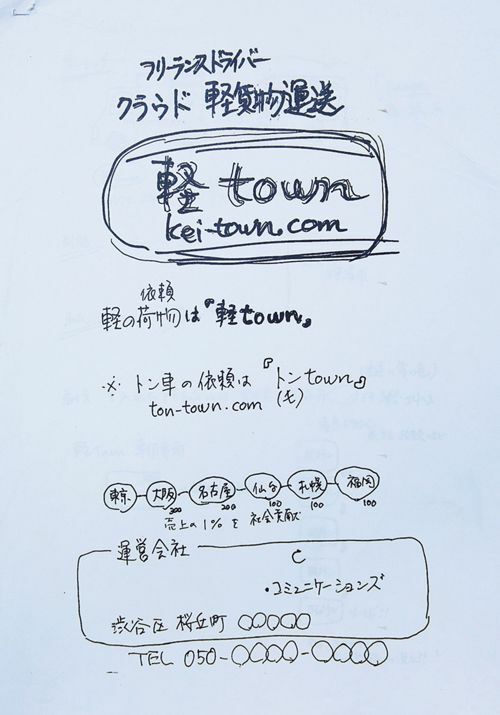 フリーランスドライバー
クラウド 軽貨物運送
軽 town
kei-town.com
依頼
軽の荷物は『軽town』
※ トン車の依頼は『トンtown』
ton-town.com
東京 大阪 名古屋 仙台 札幌 福岡
200 200 100 100 100
売上の1%を社会貢献
運営会社
・コミュニケーションズ
渋谷区 桜丘町 ○○○○○
TEL 050-○○○○-○○○○